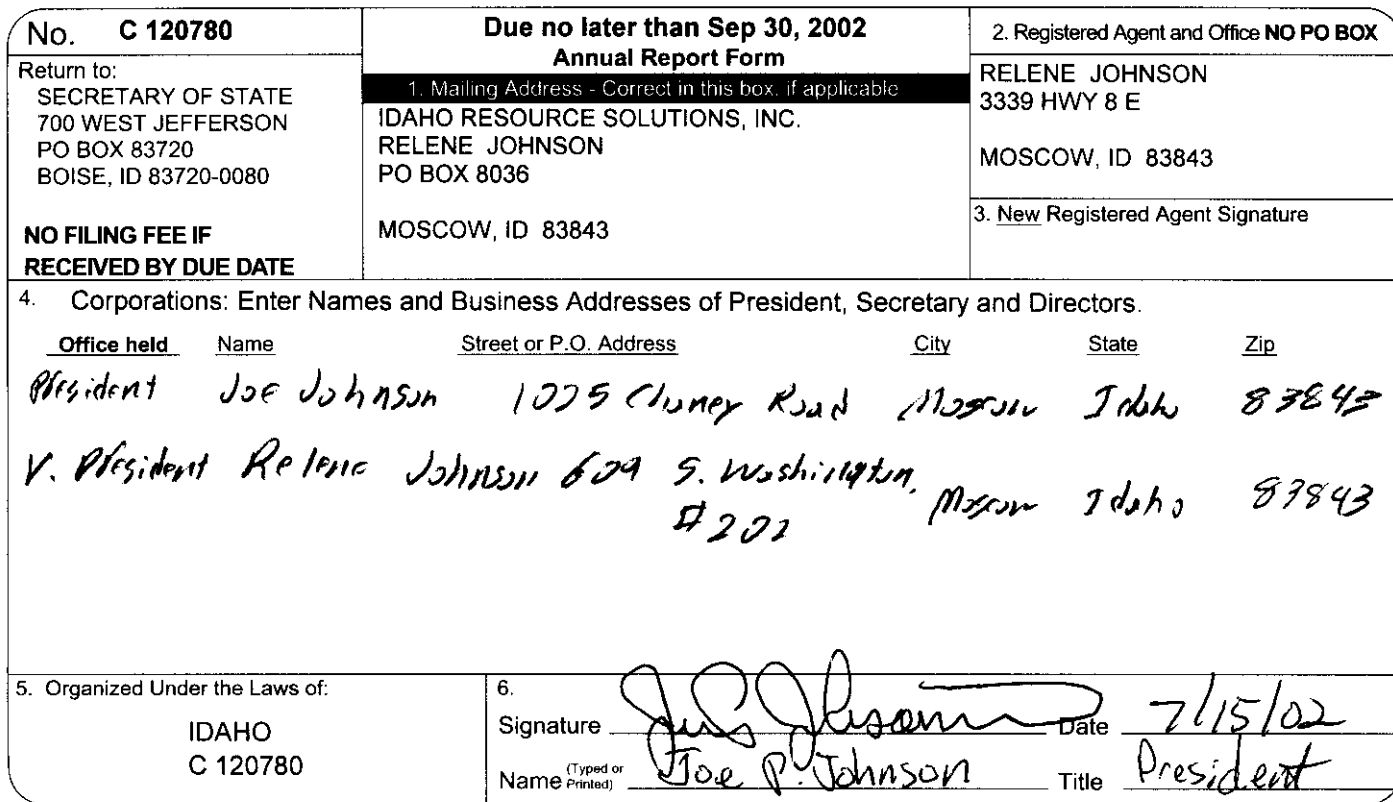 No. C 120780
Return to:
SECRETARY OF STATE
700 WEST JEFFERSON
PO BOX 83720
BOISE, ID 83720-0080
NO FILING FEE IF
RECEIVED BY DUE DATE
Due no later than Sep 30, 2002
Annual Report Form
1. Mailing Address - Correct in this box, if applicable
IDAHO RESOURCE SOLUTIONS, INC.
RELENE JOHNSON
PO BOX 8036
MOSCOW, ID 83843
2. Registered Agent and Office NO PO BOX
RELENE JOHNSON
3339 HWY 8 E
MOSCOW, ID 83843
3. New Registered Agent Signature
4. Corporations: Enter Names and Business Addresses of President, Secretary and Directors.
Office held Name Street or P.O. Address City State Zip
President Joe Johnson Road Moscow Idaho 83843
V. President Relene Johnson 609 S. Washington, Moscow Idaho 83843
#202
5. Organized Under the Laws of:
IDAHO
C 120780
6.
Signature Date 7/15/02
Name (Typed or Printed) Joe P. Johnson Title President